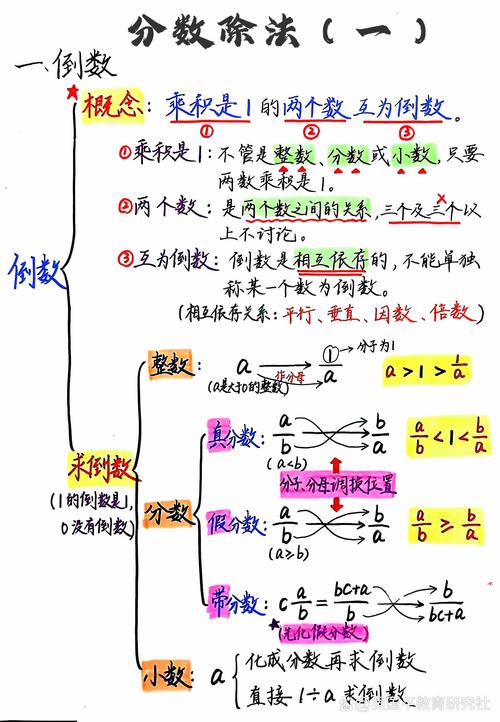 分数除法(一)
一.倒数
倒数
概念: 乘积是1的两个数互为倒数。
① ② ③
①乘积是1: 不管是整数、分数或小数,只要
两数乘积是1。
②两个数: 是两个数之间的关系,三个及三个以
上不讨论。
③互为倒数: 倒数是相互依存的,不能单独
称某一个数为倒数。
(相互依存关系:平行、垂直、因数、倍数)
求倒数
(1的倒数是1,
0没有倒数)
整数: a 作分母 ①/a →分子为1 a>1>1/a
(a是大于0的整数)
分数
真分数: a/b b/a a/b<1<b/a
(a<b)
分子、分母调换位置
假分数: a/b b/a a/b≥b/a
(a≥b)
带分数: c a/b = bc+a/b b/bc+a
(先化假分数)
小数: a
化成分数再求倒数
直接1÷a求倒数